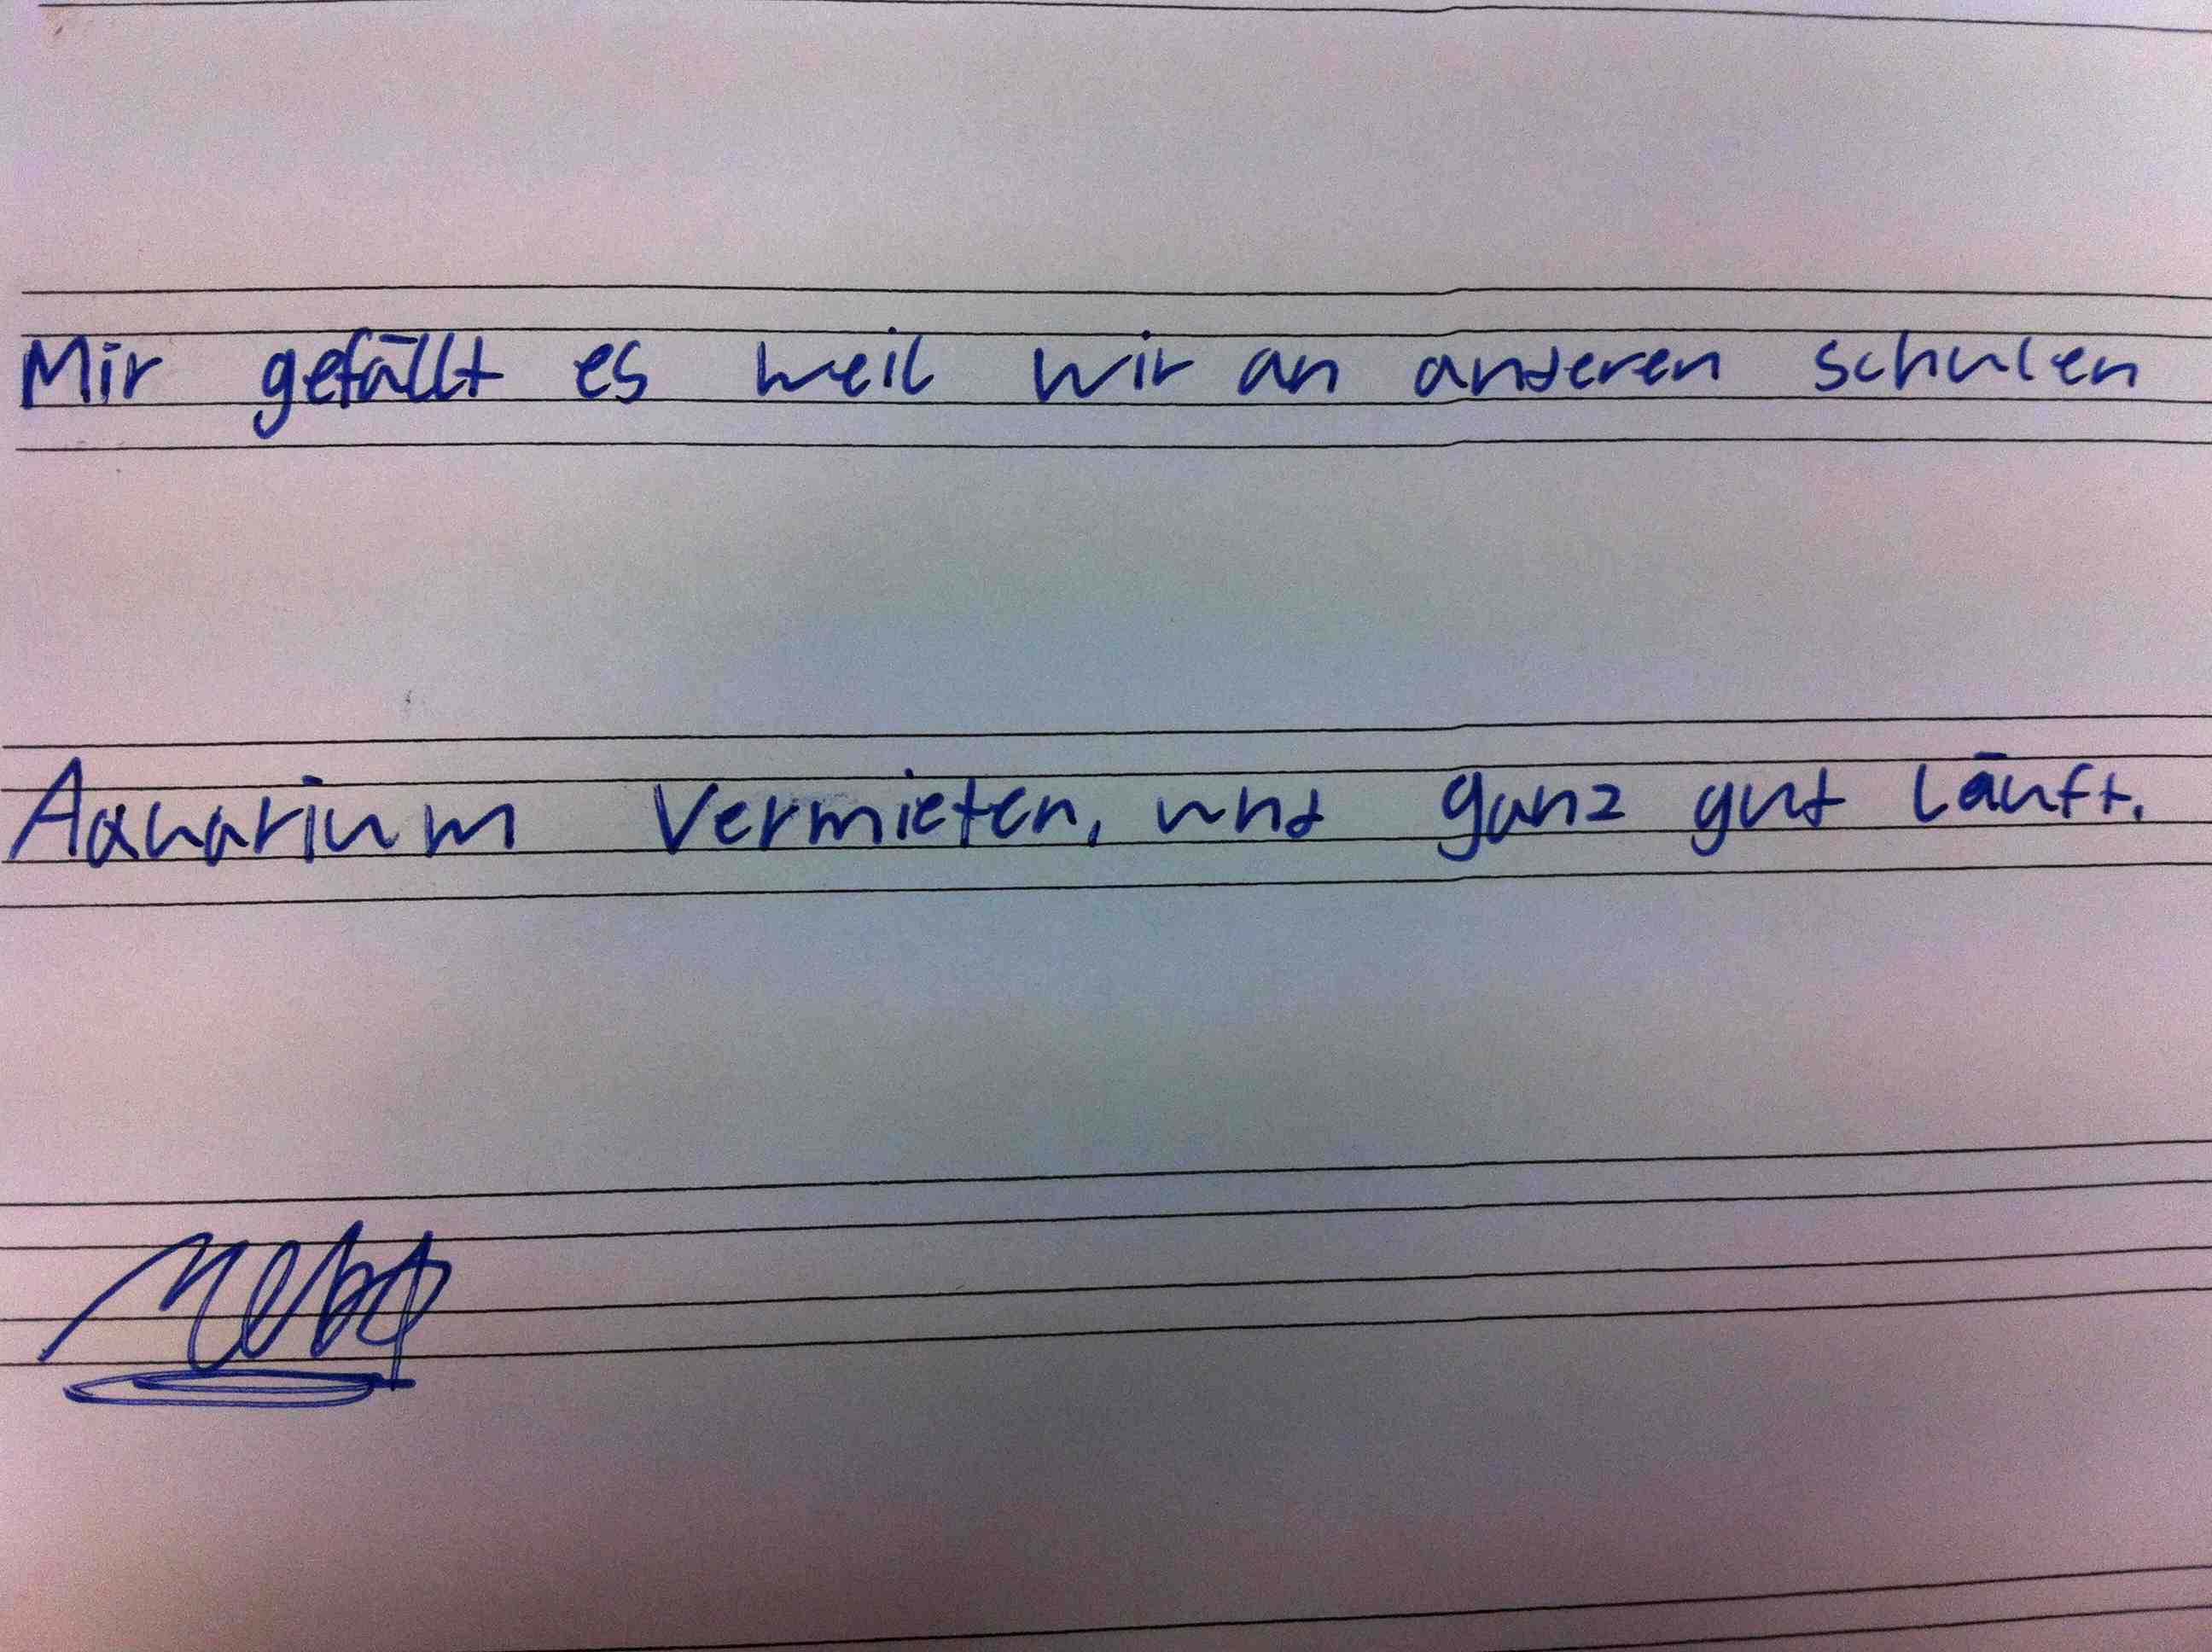 Mir gefällt es weil wir an anderen schulen
Aquarium Vermieten, und ganz gut läuft.